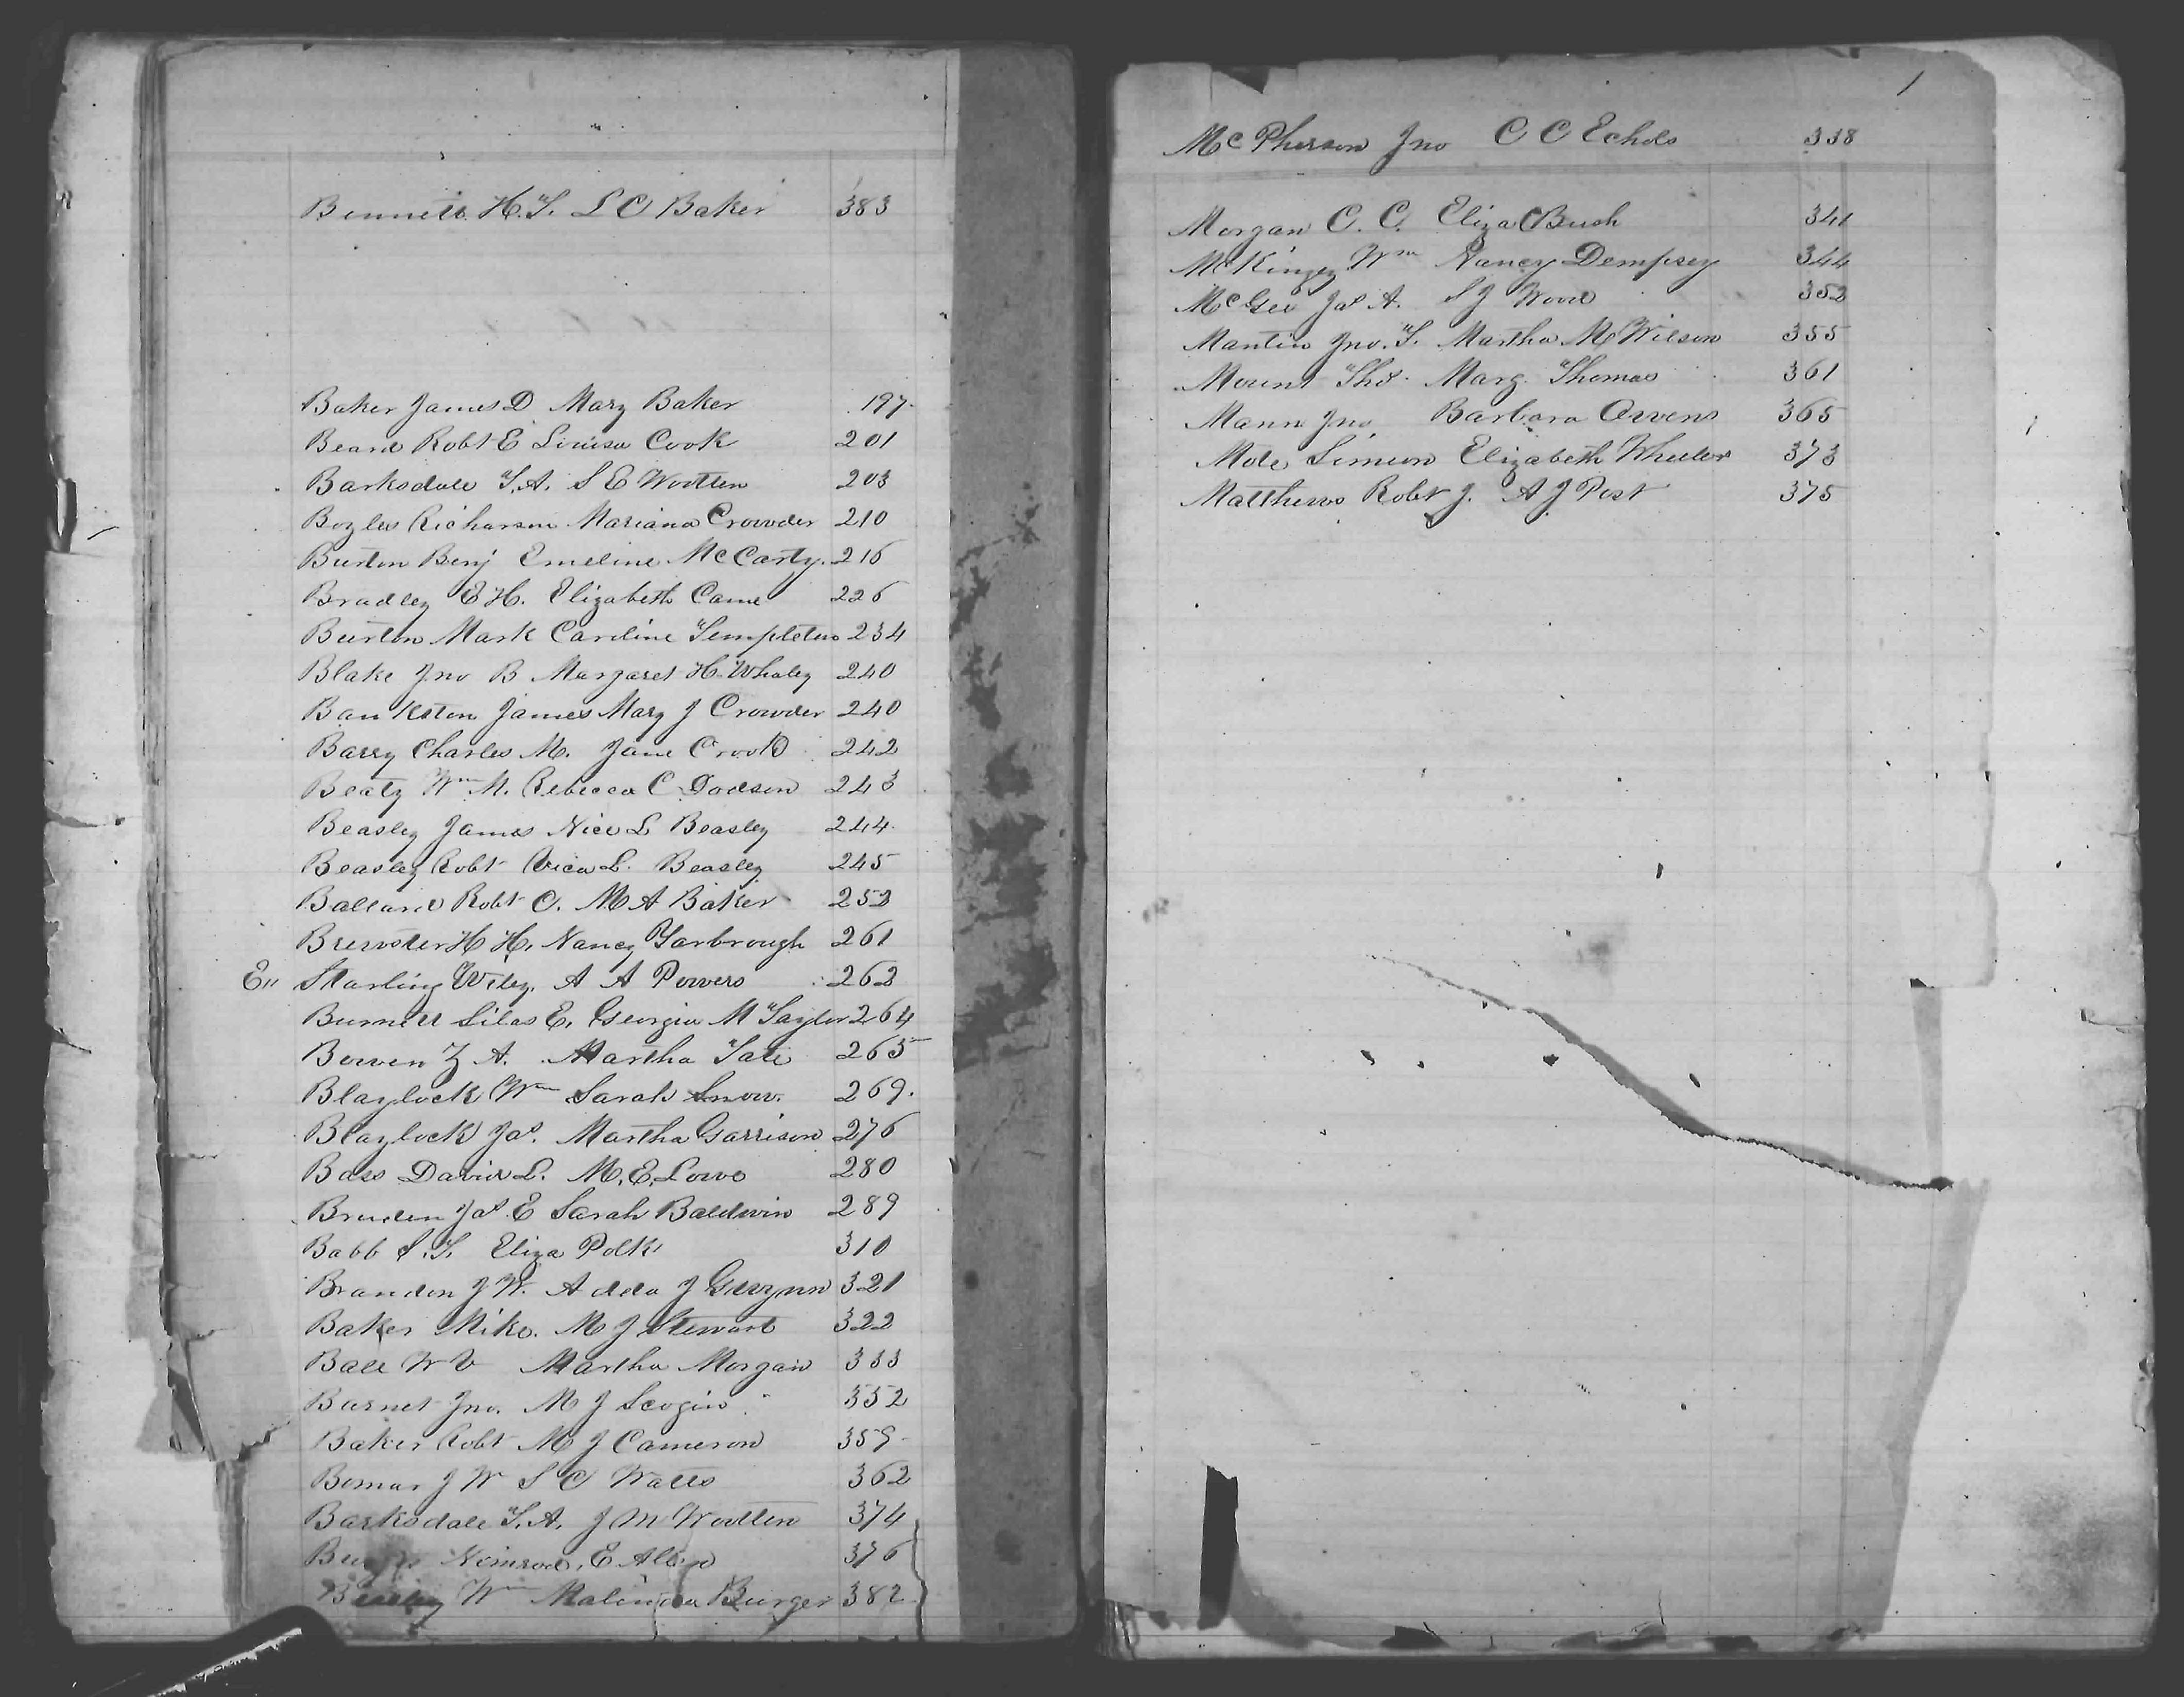 Bennett H. T. L C Baker 383
Baker James D Mary Baker 197
Beard Robt E Louisa Cook 201
Barksdale T. A. S E Wootten 203
Boyles Richarson Mariana Crowder 210
Burton Benj Emeline McCarty. 216
Bradley E H. Elizabeth Came 226
Burton Mark Caroline Templeton 234
Blake Jno B Margaret H Whaley 240
Bankston James Mary J Crowder 240
Barry Charles M. Jane Crook 242
Beaty Wm M. Rebecca C Dodson 243
Beasley James Nice L Beasley 244
Beasley Robt L. Beasley 245
Ballard Robt C. M A Baker 252
Brewster H H. Nancy Yarbrough 261
E" Starling Wiley. A A Powers 262
Burnett Silas E. Georgia M Taylor 264
Bowen Z A. Martha Tate 265
Blaylock Wm Sarah Snow. 269.
Blaylock Jas. Martha Garrison 276
Bass David L. M. E. Lowe 280
Braden Jas. E Sarah Baldwin 289
Babb S. T. Eliza Polk 310
Branden J W. Adda J Gwynn 321
Baker Mike. M J Stewart 322
Ball W V Martha Morgan 333
Barnet Jno. M J Scogin 352
Baker Robt M J Cameron 359
Bomar J W S C Watts 362
Barksdale T. A. J M Wootten 374
Nimrod, E 376
Wm Malinda Burger 382
1
McPherson Jno C C Echols 338
Morgan C. C. Eliza Bush 341
McKinzey Wm Nancy Dempsey 344
McGee Jas A. S J Wood 352
Mantin Jno. T. Martha M Wilson 355
Mount Thos. Marg. Thomas 361
Mann Jno. Barbara Owens 365
Mote Simeon Elizabeth Wheeler 373
Matthews Robt J. A J Post 375